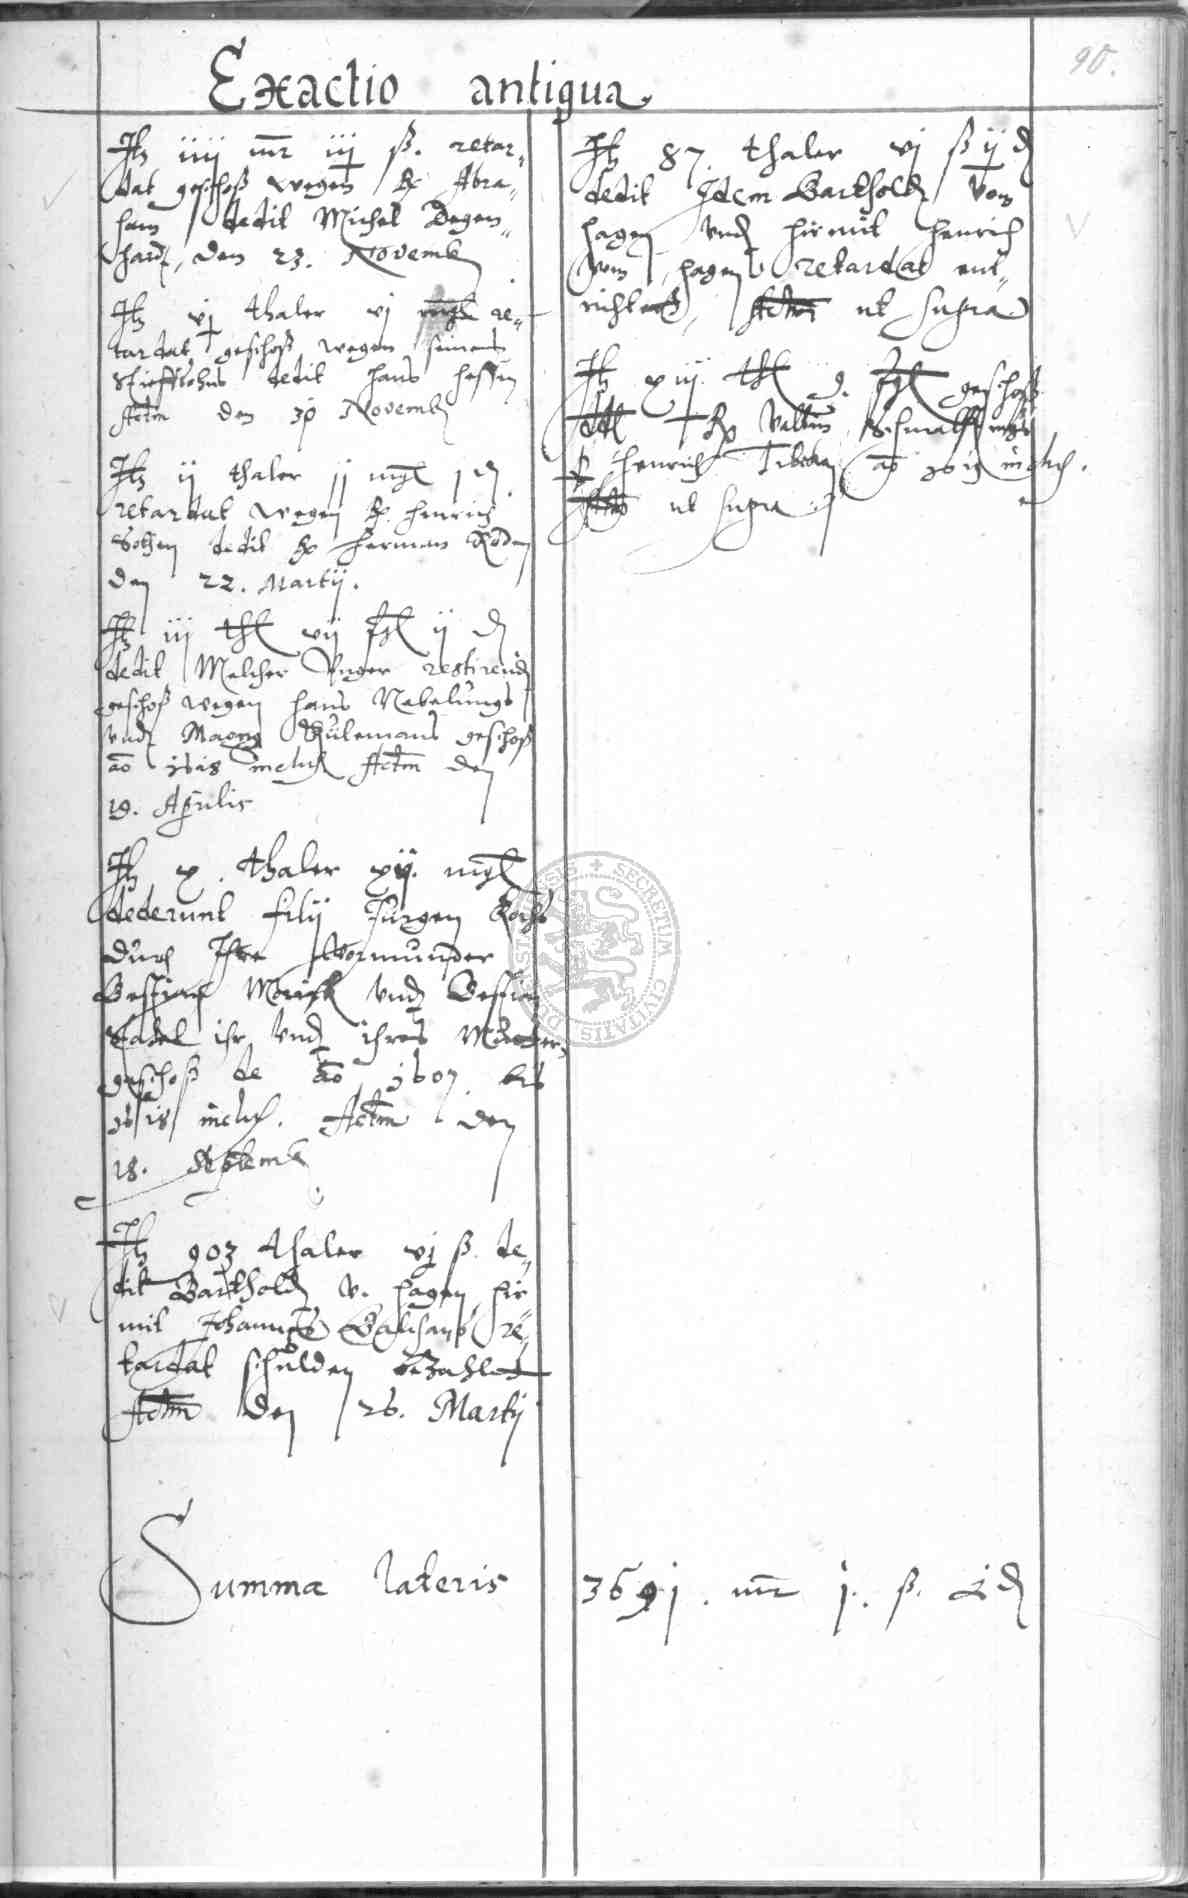 90.
Exactio antiqua.
It iiij mr iij ß. retar„
dat geschoß wegen H Abra„
ham dedit Michel Degen„
hardt, den 23. Novemb
It vj thaler vj mgl re„
tardat geschoß wegen seines
Stieffsohns dedit hans hessen
Actm den 30 Novemb
It ij thaler jj mgl j d
retardat wegen H. henrich
Sothen dedit H herman Roden
den 22. Martij.
It iij thl vij ßgl ij d
dedit Melcher Unger restirend
geschoß wegen hans Nebelungs
und Külemans geschoß
ao 1618 inclus Actm den
19. Aprilis
It x. thaler xij. mgl
dederunt filij Jürgen Kochs
durch Ihre Vormunder
Bestian und Bestian
Stadel ihr und ihres Mutter„
geschoß de ao 1607 bis
1618 inclus. Actm den
18. Septemb
It 903 thaler vj ß. de„
dit Barthold v. hagen hir
mit Johannes re„
tardat schulden bezahlet
Actm den 26. Martij
It 87. thaler vj ß ij d
dedit Idem Barthold Von
hagen und hirmit henrich
vom hagen retardat ent„
richtet, Actm ut supra
It xiij thl 9. ßgl geschoß
dedit H Valtin
henrich ao 1619 inclus.
Actm ut supra
Summa lateris 3691. mr j. ß. d
SECRETUM CIVITATIS